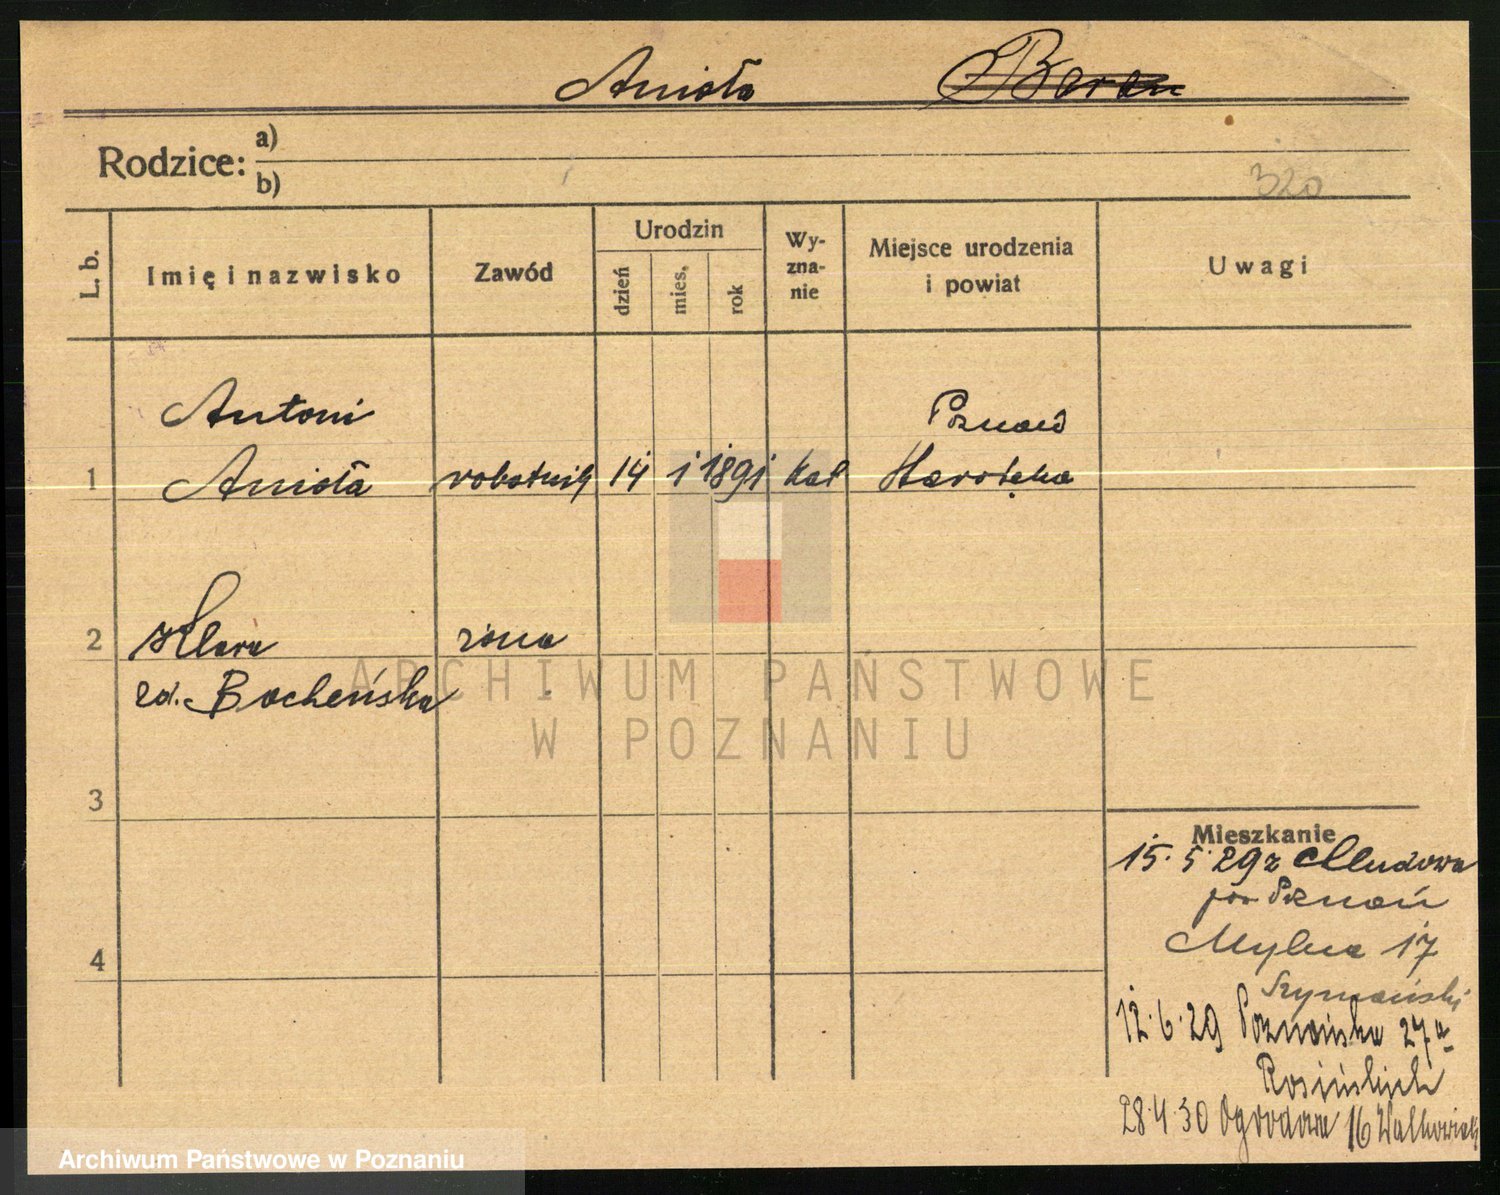 Anioła Baran
Rodzice: a)
b)
320
L. b.
Imię i nazwisko
Zawód
Urodzin
dzień
mies.
rok
Wy-
zna-
nie
Miejsce urodzenia
i powiat
Uwagi
Antoni
Poznań
1 Anioła robotnik 14 1 1891 kat Starołęka
2 Klara żona
zd. Bocheńska
ARCHIWUM PAŃSTWOWE
W POZNANIU
3
4
Mieszkanie
15.5.29 z
Poznań
Mylna 17
Szymański
12.6.29 Poznańska 27a
28.4.30 Ogrodowa 16 Walkowiak
Archiwum Państwowe w Poznaniu